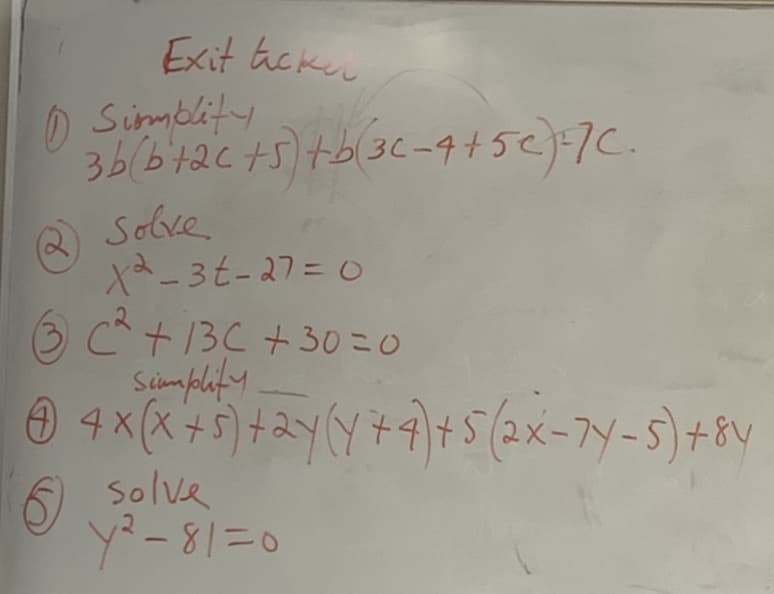 Exit ticket
① Simmplify
3b(b+2c+5)+b(3c-4+5c)-7c.
② Solve
x²-3t-27=0
③ c²+13c+30=0
simplify
④ 4x(x+5)+2y(y+4)+5(2x-7y-5)+8y
⑤ solve
y²-81=0